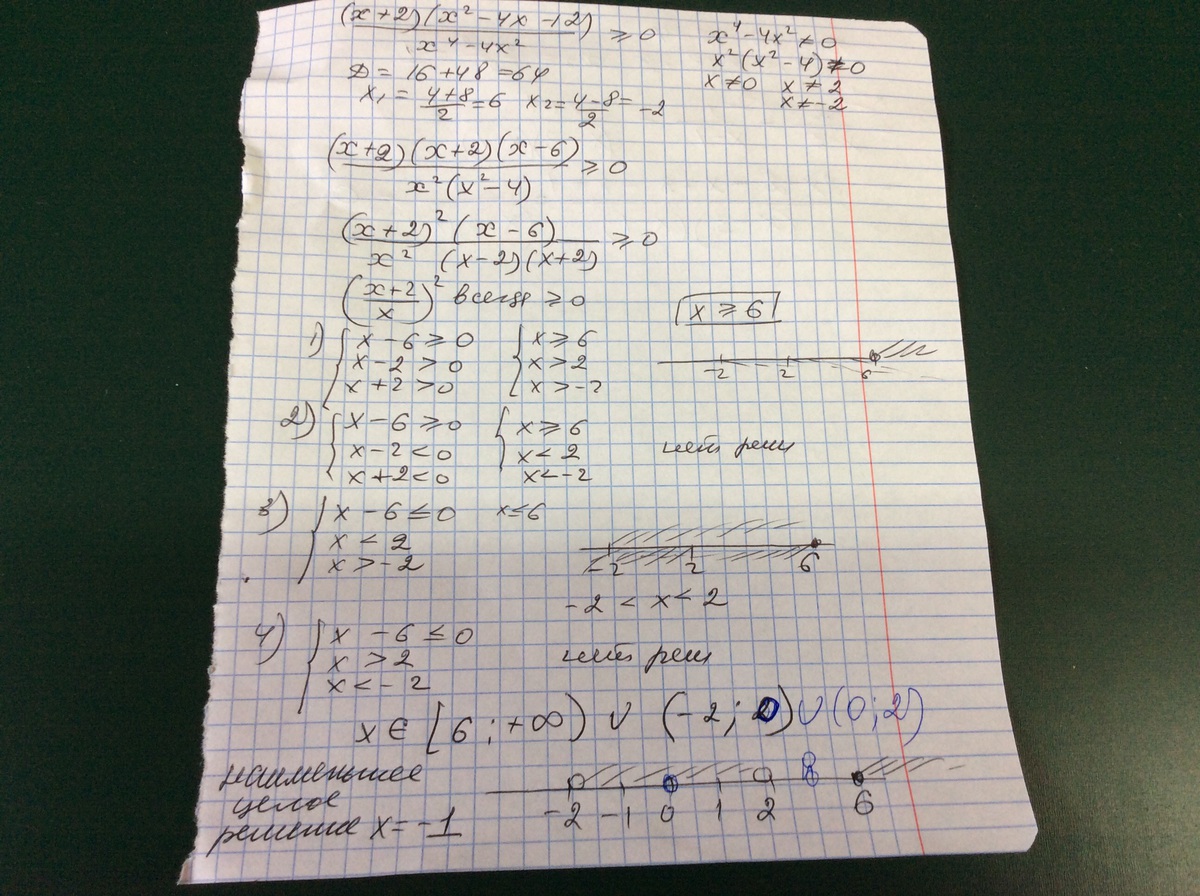 (x+2)(x²-4x-12) / x⁴-4x² ⩾ 0
x⁴-4x² ≠ 0
x²(x²-4) ≠ 0
x≠0 x≠2
x≠-2
D = 16+48=64
x₁ = 4+8/2 = 6 x₂ = 4-8/2 = -2
(x+2)(x+2)(x-6) / x²(x²-4) ⩾ 0
(x+2)²(x-6) / x² (x-2)(x+2) ⩾ 0
(x+2/x)² всегда ⩾ 0
x ⩾ 6
1) { x-6 ⩾ 0 { x ⩾ 6
x-2 > 0 x > 2
x+2 > 0 x > -2
-2 2 6
2) { x-6 ⩾ 0 { x ⩾ 6
x-2 < 0 x < 2
x+2 < 0 x < -2
нет реш
3) { x-6 ≤ 0 x≤6
x < 2
x > -2
-2 2 6
-2 < x < 2
4) { x-6 ≤ 0
x > 2
x < -2
нет реш
x ∈ [6; +∞) ∪ (-2; 0) ∪ (0; 2)
наименьшее
целое
решение x = -1
-2 -1 0 1 2 6